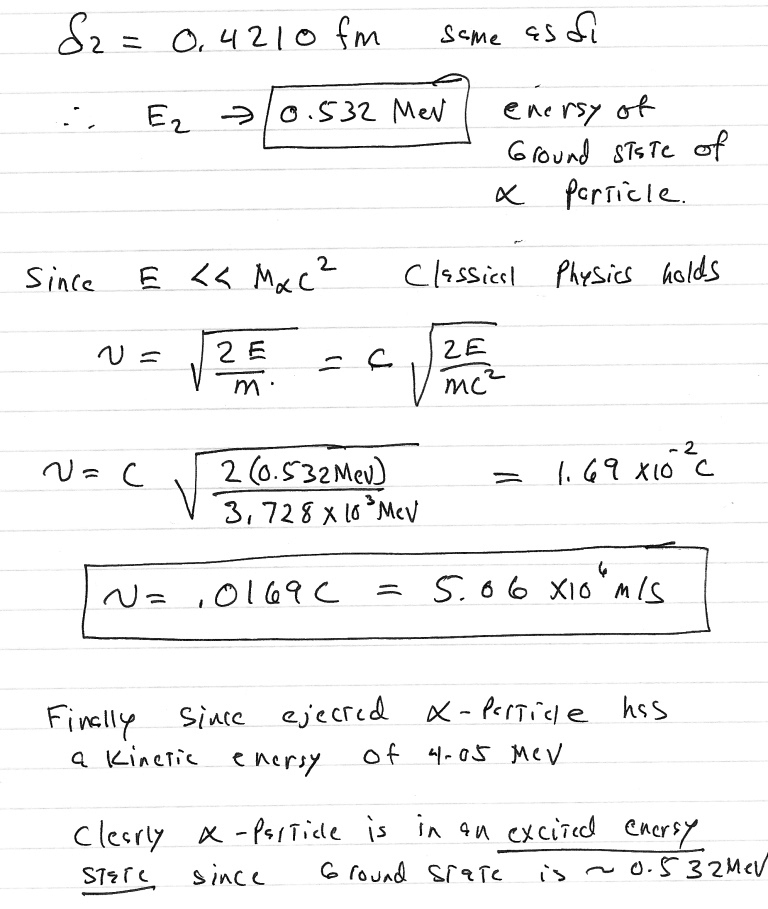 δ2 = 0.4210 fm same as δ1
∴ E2 → 0.532 MeV energy of
Ground state of
α particle.
Since E << Mαc² Classical Physics holds
v = √(2E/m) = c √(2E/mc²)
v = c √(2(0.532 MeV)/3.728 x 10³ MeV) = 1.69 x10⁻² c
v = .0169c = 5.06 x10⁶ m/s
Finally since ejected α-Particle has
a kinetic energy of 4.05 MeV
Clearly α-Particle is in an excited energy
state since Ground state is ~ 0.532 MeV